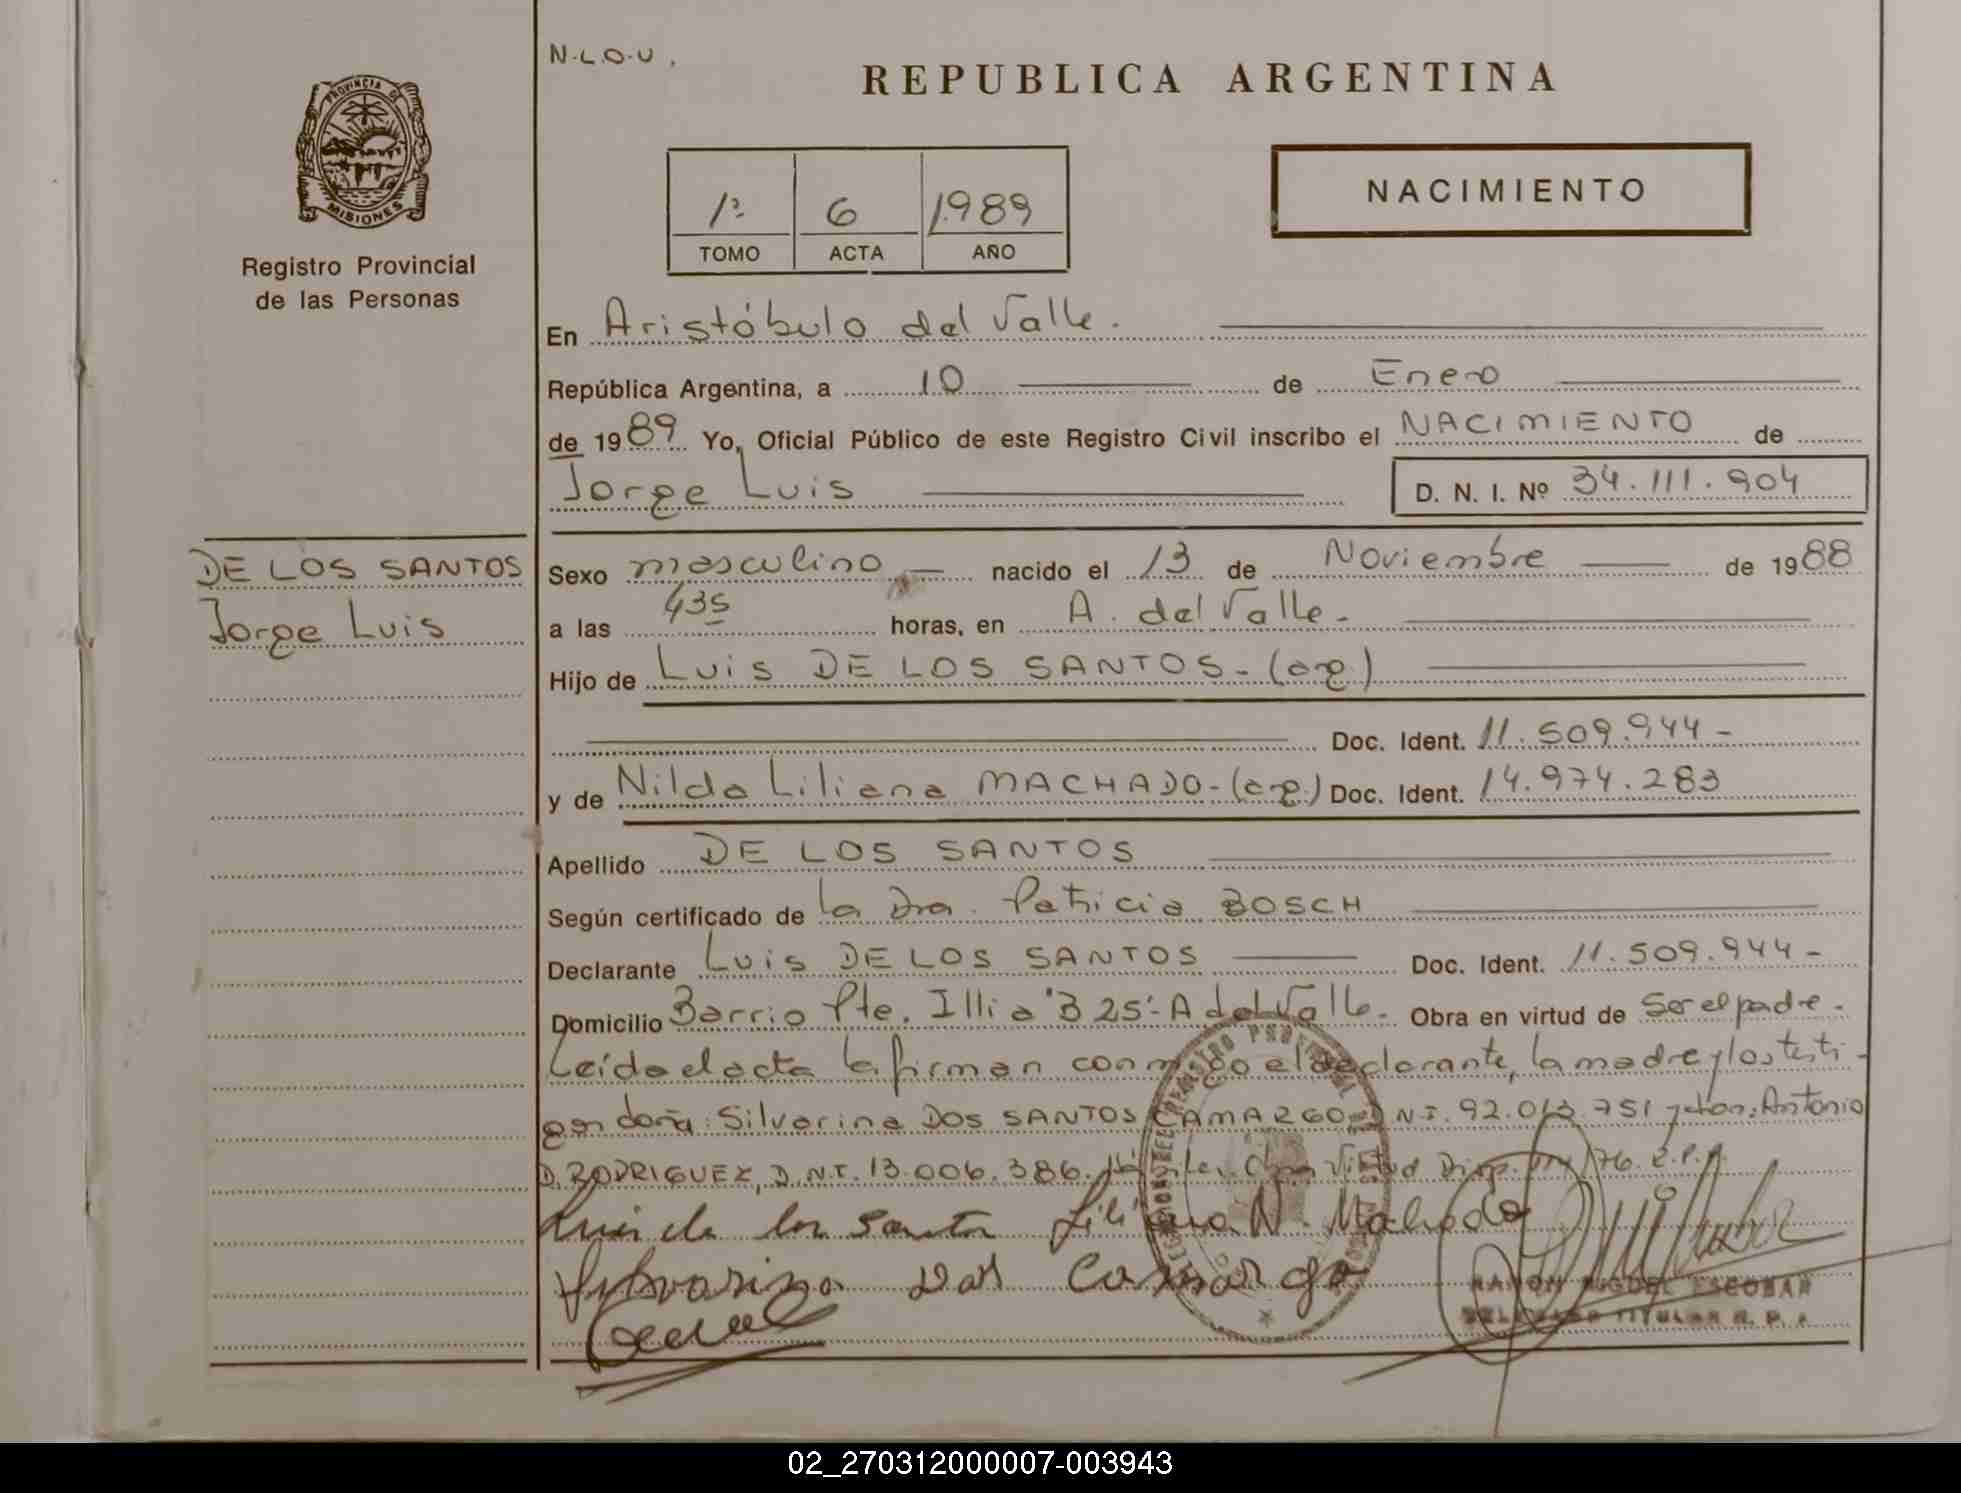 N.L.O.U.
REPUBLICA ARGENTINA
PROVINCIA DE
MISIONES
Registro Provincial
de las Personas
1º 6 1989
TOMO ACTA AÑO
NACIMIENTO
En Aristóbulo del Valle.
República Argentina, a 10 de Enero
de 1989 Yo, Oficial Público de este Registro Civil inscribo el NACIMIENTO de
Jorge Luis D. N. I. Nº 34.111.904
DE LOS SANTOS
Jorge Luis
Sexo masculino nacido el 13 de Noviembre de 1988
a las 435 horas, en A. del Valle.
Hijo de Luis DE LOS SANTOS - (arg.)
Doc. Ident. 11.509.944 -
y de Nilda Liliana MACHADO - (arg.) Doc. Ident. 14.974.283
Apellido DE LOS SANTOS
Según certificado de la Dra. Patricia BOSCH
Declarante Luis DE LOS SANTOS Doc. Ident. 11.509.944 -
Domicilio Barrio Pte. Illia "B 25" - A del Valle. Obra en virtud de ser el padre.
Leída el acta la firman conmigo el declarante, la madre y los testi-
gos doña: Silvarina DOS SANTOS CAMARGO D.N.I. 92.013.751 y don: Antonio
D. RODRIGUEZ, D.N.I. 13.006.386. Virtud Disp. /76. R.P.P.
Luis de los Santos Liliana N. Machado
Silvarina Dos Camargo
RAMON MIGUEL ESCOBAR
DELEGADO TITULAR R. P. P.
02_270312000007-003943